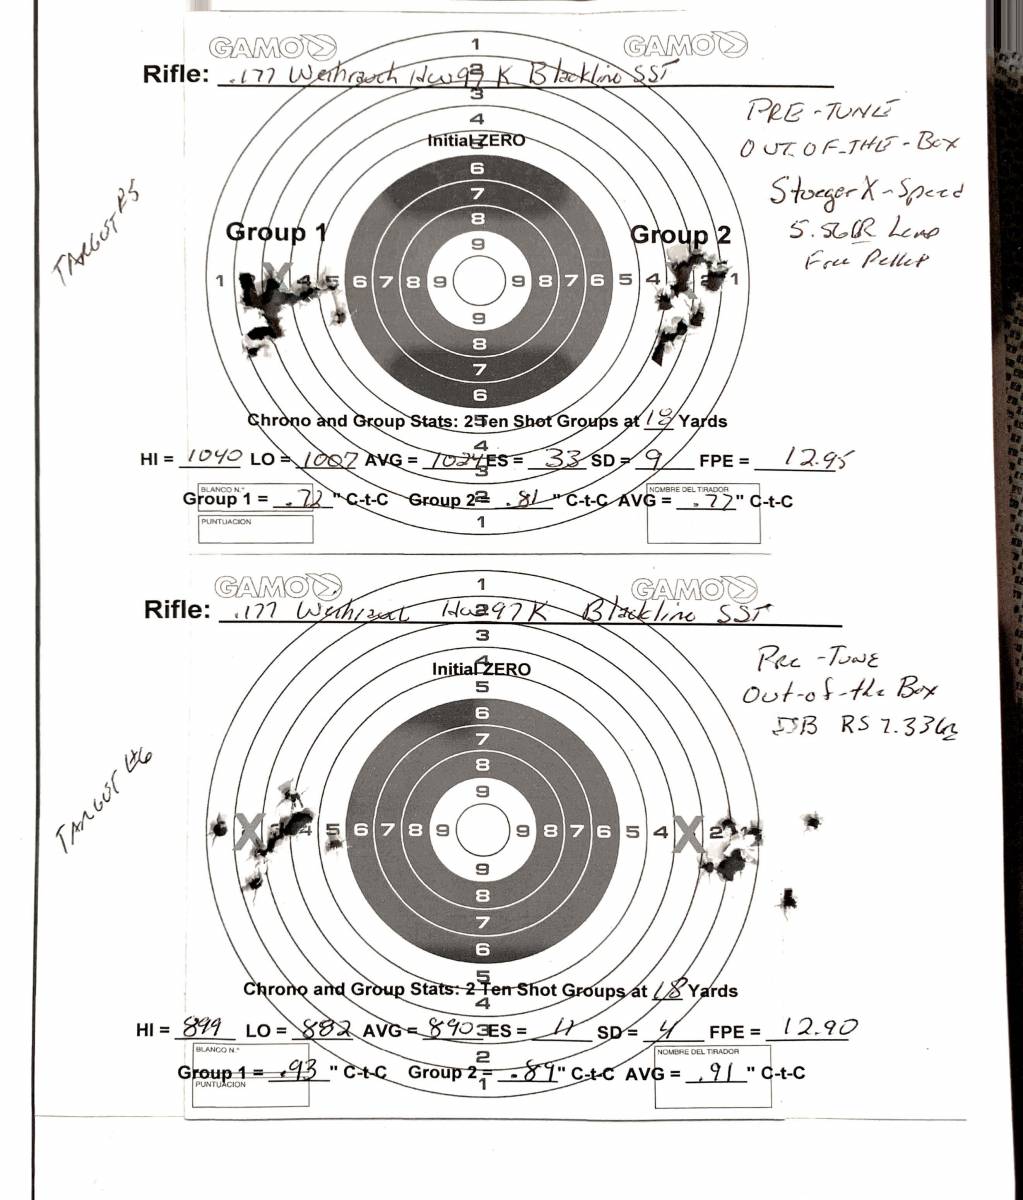 GAMO GAMO
Rifle: .177 Weihrauch Hw97 K Blackline SST
PRE-TUNE
OUT-OF-THE-Box
Stoeger X-Speed
5.56GR Lead
Free Pellet
TARGET #5
Initial ZERO
Group 1
Group 2
1
2
3
4
5
6
7
8
9
1 2 4 5 6 7 8 9 9 8 7 6 5 4 2 1
9
8
7
6
5
Chrono and Group Stats: 2 Ten Shot Groups at 18 Yards
4
HI = 1040 LO = 1007 AVG = 1024 ES = 33 SD = 9 FPE = 12.95
3
BLANCO N.° NOMBRE DEL TIRADOR
Group 1 = .72" C-t-C Group 2 = .81" C-t-C AVG = .77" C-t-C
2
PUNTUACION
1
GAMO GAMO
1
Rifle: .177 Weihrauch Hw97K Blackline SST
2
3
Pre-Tune
Out-of-the Box
JSB RS 7.33GR
TARGET #6
4
Initial ZERO
5
6
7
8
9
X 3 4 5 6 7 8 9 9 8 7 6 5 4 X 2 1
9
8
7
6
5
Chrono and Group Stats: 2 Ten Shot Groups at 18 Yards
4
HI = 899 LO = 882 AVG = 890 ES = 17 SD = 4 FPE = 12.90
3
BLANCO N.° NOMBRE DEL TIRADOR
2
Group 1 = .93" C-t-C Group 2 = .89" C-t-C AVG = .91" C-t-C
1
PUNTUACION